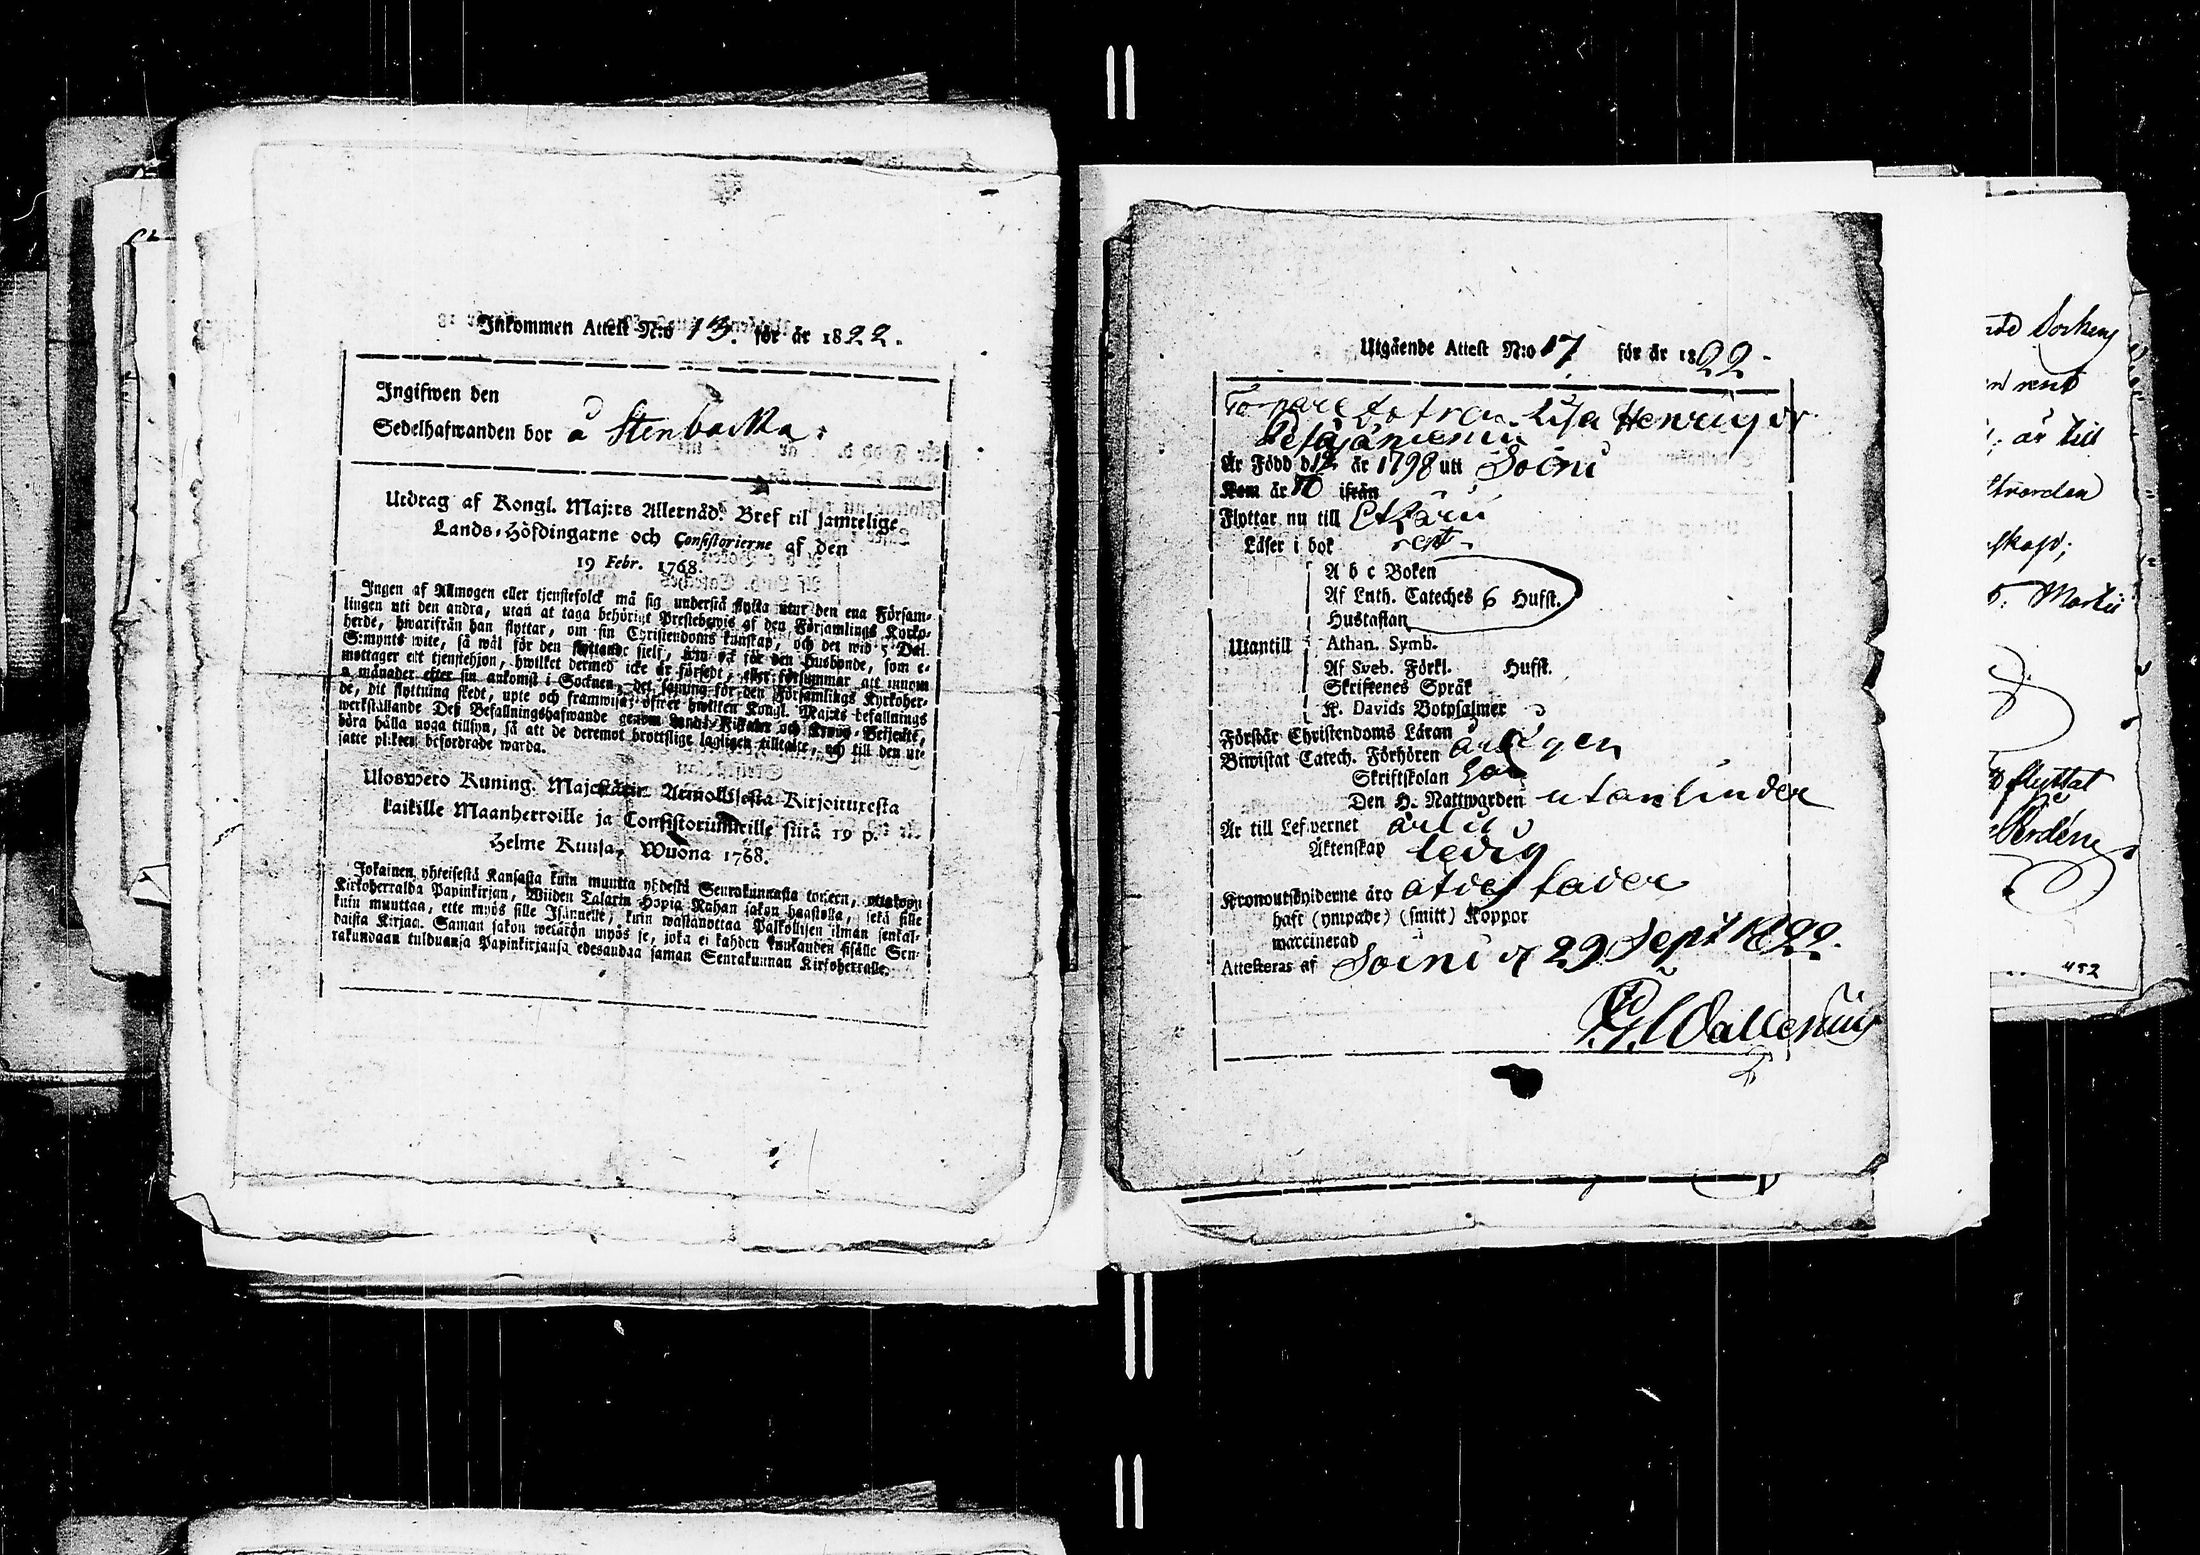 Inkommen Attest N:o 13. för år 1822.
Ingifwen den
Sedelhafwanden bor å Stenbacka
Utdrag af Kongl. Maj:ts Allernåd. Bref til samtelige
Lands-Höfdingarne och Consistorierne af den
19 Febr. 1768.
Ingen af Allmogen eller tjenstefolck må sig understå flytta utur den ena Församlingen
uti den andra, utan at taga behörigt Prestebewis af den Församlings Kyrko-
herde, hwarifrån han flyttar, om sin Christendoms kunskap, och det wid 5 Dal.
S:mynts wite, så wäl för den flyttande sielf, som ock för den Husbonde, som e-
mottager ett tjenstehjon, hwilket dermed icke är försedt, eller försummar att innom
2 månader efter sin ankomst i Socknen, det samma för den Församlings Kyrkoher-
de, dit flyttning skedt, upte och framwisa; öfwer hwilken Kongl. Maj:ts befallnings
werkställande Deß Befallningshafwande genom Lands-Fiskaler och Krono-Betjente,
böra hålla noga tillsyn, så att de deremot brottslige lagligen tilltalte, och till den ut-
satte plikten befordrade warda.
Uloswето Kuning. Majestätin Armollisesta Kirjoituxesta
kaikille Maanherroille ja Consistoriumeille siitä 19 p.
Helme Kuusa, Wuona 1768.
Jokainen yhteisestä Kansasta kuin muutta yhdestä Seurakunnasta toiseen, ottakoon
Kirkoherralda Papinkirjan, Wiiden Talarin Hopia Rahan sakon haastolla, sekä sille
kuin muuttaa, ette myös sille Isännelle, kuin wastanottaa Palkollisen ilman senkal-
daista Kirjaa. Saman sakon wetäkön myös se, joka ei kahden kuukauden sisälle Seu-
rakundaan tulduansa Papinkirjansa edesandaa saman Seurakunnan Kirkoherralle.
Utgående Attest N:o 17 för år 1822.
Torpare dottren Lisa Henricsdr
Pesäjäniemi
Är Född d. 12 år 1798 uti Soini
Kom år ifrån
Flyttar nu till Etzäri
Läser i bok rent
A b c Boken
Af Luth. Cateches 6 Hufst.
Hustaflan
Utantill Athan. Symb.
Af Sveb. Förkl. Hufst.
Skriftenes Språk
K. Davids Botpsalmer
Förstår Christendoms Läran
Biwistat Catech. Förhören årligen
Skriftskolan
Den H. Nattwarden utan hinder
Är till Lefwernet ärlig
Äktenskap ledig
Kronoutskylderne äro af des fader
haft (ympade) (smitt) Koppor
waccinerad
Attesteras af Soini d 29 Sept 1822.
Wallenius
Socken
rent
är till
skap;
Martii
flyttat
452